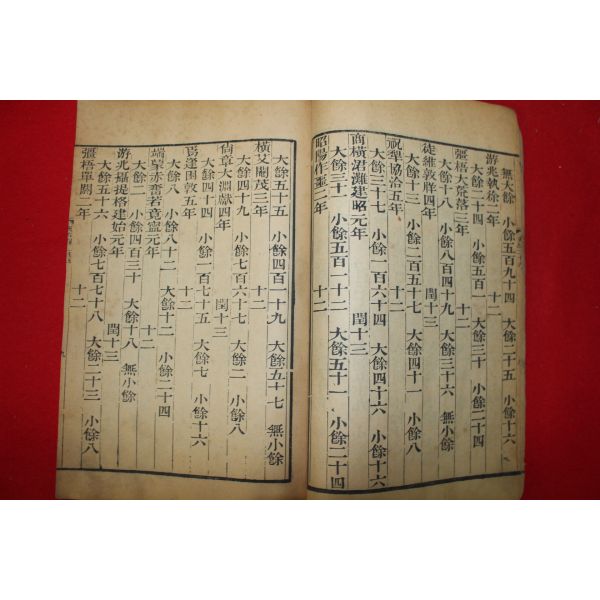 無大餘 小餘五百九十四 大餘二十五 小餘八
游兆執徐二年 十二
大餘二十四 小餘五百一 大餘三十 小餘二十四
彊梧大荒落三年 十二
大餘十八 小餘八百四十九 大餘三十六 無小餘
徒維敦牂四年 閏十三
大餘十三 小餘二百五十七 大餘四十一 小餘八
祝犂協洽五年 十二
大餘三十七 小餘一百六十四 大餘四十六 小餘十六
商橫涒灘建昭元年 閏十三
大餘三十一 小餘五百一十二 大餘五十一 小餘二十四
昭陽作噩二年 十二
大餘五十五 小餘四百一十九 大餘五十七 無小餘
橫艾閹茂三年 十二
大餘四十九 小餘七百六十七 大餘二 小餘八
尙章大淵獻四年 閏十三
大餘四十四 小餘一百七十五 大餘七 小餘十六
焉逢困敦五年 十二
大餘八 小餘八十二 大餘十二 小餘二十四
端蒙赤奮若竟寧元年 十二
大餘二 小餘四百三十 大餘十八 無小餘
游兆攝提格建始元年 閏十三
大餘五十六 小餘七百七十八 大餘二十三 小餘八
彊梧單閼二年 十二